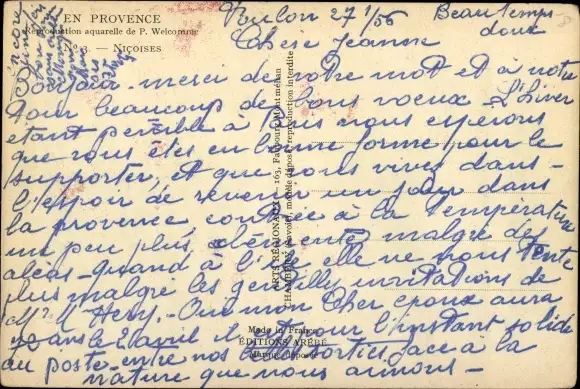 EN PROVENCE
Reproduction aquarelle de P. Welcomme
No 3. — NIÇOISES
Toulon 27 1/56
Beau temps
doux
Chère Jeanne
Bonjour. merci de votre mot et à notre
tour beaucoup de bons voeux. L'hiver
étant pénible à tous nous espérons
que vous êtes en bonne forme pour le
supporter, et que vous vivez dans
l'espoir de revenir un jour dans
la province à la température
un peu plus clémente malgré des
aléas. quand à l'été elle ne nous tente
plus malgré les gentilles invitations de
Mr M Hery. Que mon cher époux aura
ans le 2 avril il est pour l'instant solide
au poste. entre nos sorties face à la
nature que nous aimons.
ARTS RÉGIONAUX — 163, Faubourg Montmélian
CHAMBÉRY (Savoie), modèle déposé, reproduction interdite
Made in France
ÉDITIONS ARÈBE
Marque déposée